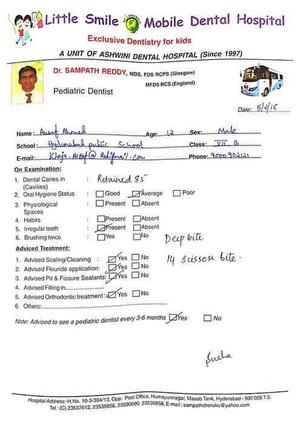 Little Smile Mobile Dental Hospital
Exclusive Dentistry for kids
A UNIT OF ASHWINI DENTAL HOSPITAL (Since 1997)
Dr. SAMPATH REDDY, MDS, FDS RCPS (Glasgow)
MFDS RCS (England)
Pediatric Dentist
Date: 5/2/16
Name: Ahmed Age: 12 Sex: Male
School: Hyderabad public School Class: VII B
E-mail: Phone:
On Examination:
1. Dental Caries in (Cavities) : Retained 85
2. Oral Hygiene Status : Good Average Poor
3. Physiological Spaces : Present Absent
4. Habits : Present Absent
5. Irregular teeth : Present Absent
6. Brushing twice : Yes No
Deep bite
14 Scissors bite.
Adviced Treatment:
1. Advised Scaling/Cleaning : Yes No
2. Advised Flouride application: Yes No
3. Advised Pit & Fissure Sealants: Yes No
4. Advised Filling in
5. Advised Orthodontic treatment: Yes No
6. Others:
Note: Advised to see a pediatric dentist every 3-6 months Yes No
Hospital Address:-H.No. 10-3-304/13, Opp: Post Office, Humayunnagar, Masab Tank, Hyderabad - 500 028 T.S.